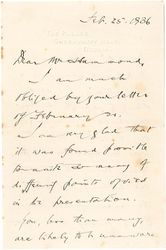 Feb. 25. 1886
Dear Mr Hammond,
I am much
obliged by your letter
of February 21.
I am very glad that
it was found possible
to unite so many of
differing points of view
in its presentation.
You, less than many,
are likely to be unaware